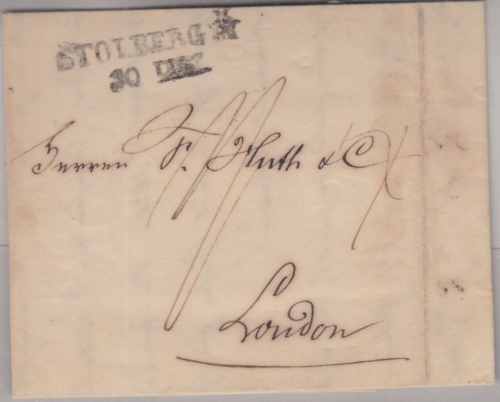 STOLBERG
30 DEC
Herren F. Huth & C
London